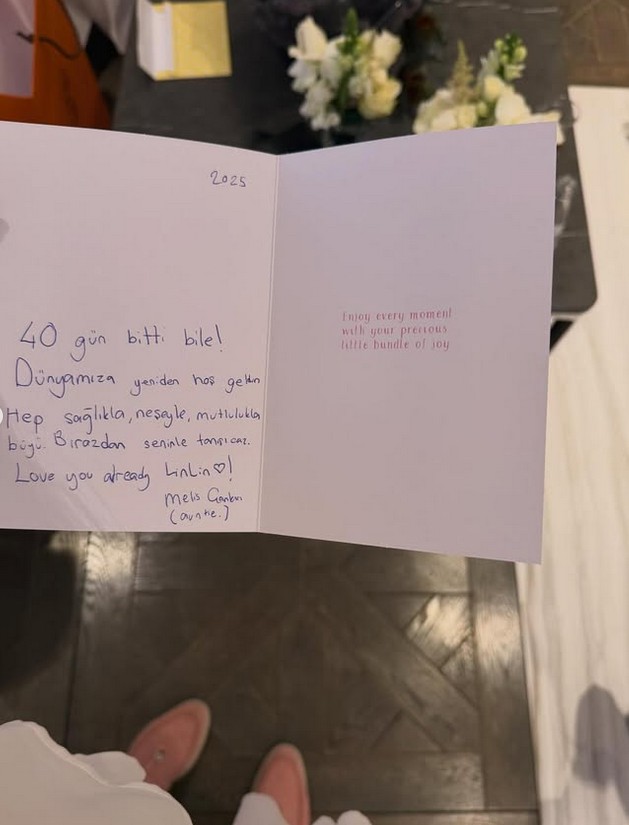 2025
40 gün bitti bile!
Dünyamıza yeniden hoş geldin
Hep sağlıkla, neşeyle, mutlulukla
büyü. Birazdan seninle tanışıcaz.
Love you already LinLin♡!
Melis
(auntie.)
Enjoy every moment
with your precious
little bundle of joy